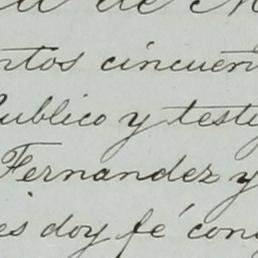 a de M
ntos cincuen
ublico y testi
Fernandez y
es doy fé cono